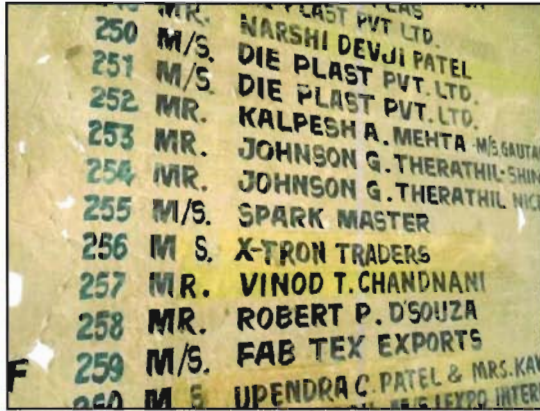 PLAST PVT LTD.
MR. NARSHI DEVJI PATEL
250 M/S. DIE PLAST PVT. LTD.
251 M/S. DIE PLAST PVT. LTD.
252 MR. KALPESH A. MEHTA - M/S.
253 MR. JOHNSON G. THERATHIL-
254 MR. JOHNSON G. THERATHIL
255 M/S. SPARK MASTER
256 M S. X-TRON TRADERS
257 MR. VINOD T. CHANDNANI
258 MR. ROBERT P. D'SOUZA
F 259 M/S. FAB TEX EXPORTS
260 M S UPENDRA C. PATEL & MRS.